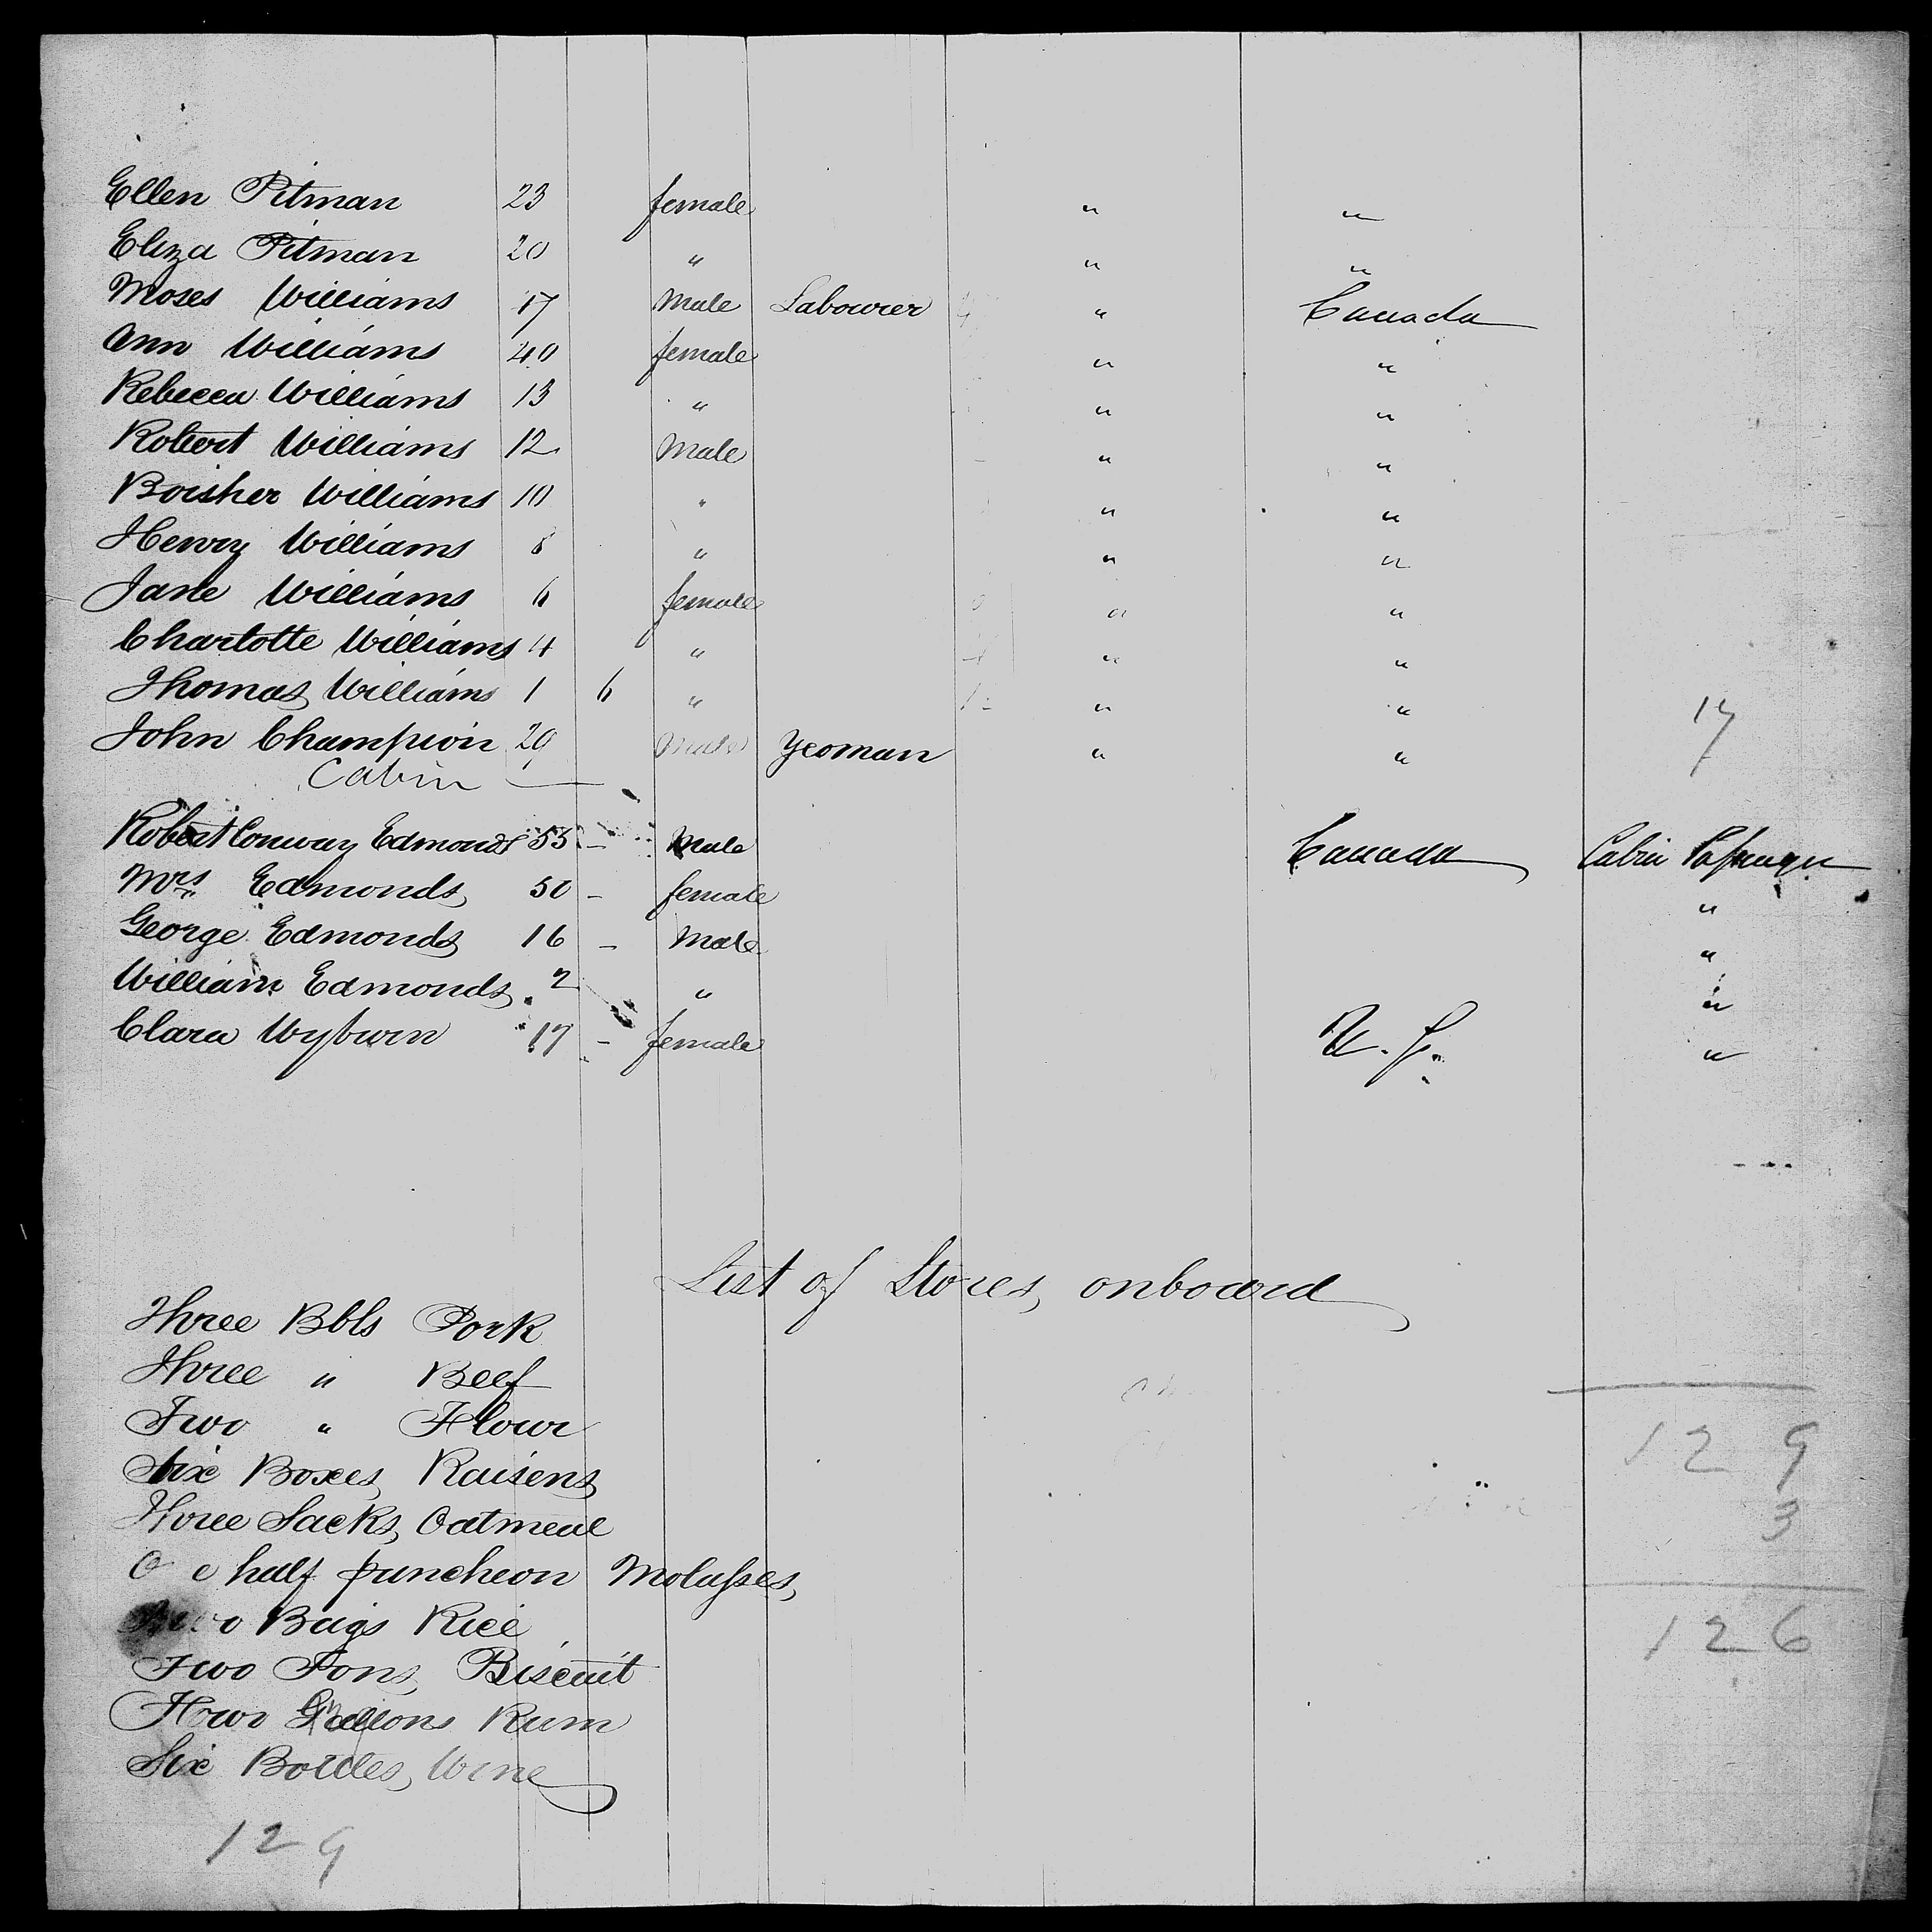 Ellen Pitman 23 female " "
Eliza Pitman 20 " " "
Moses Williams 17 Male Labourer " Canada
Ann Williams 40 female " "
Rebecca Williams 13 " " "
Robert Williams 12 Male " "
Boisher Williams 10 " " "
Henry Williams 8 " " "
Jane Williams 6 female " "
Charlotte Williams 4 " " "
Thomas Williams 1 6 " " "
John Champion 29 Male Yeoman " " 17
Cabin
Robert Conway Edmonds 55 - Male Canada Cabin Passenger
Mrs Edmonds 50 - female "
George Edmonds 16 - Male "
William Edmonds 2 " "
Clara Wyburn 17 - female U. S. "
List of Stores onboard
Three Bbls Pork
Three " Beef
Two " Flour
Six Boxes Raisens
Three Sacks Oatmeal
half puncheon Molasses
Bags Rice
Two Tons Biscuit
Gallons Rum
Six Bottles Wine
129
3
126
129